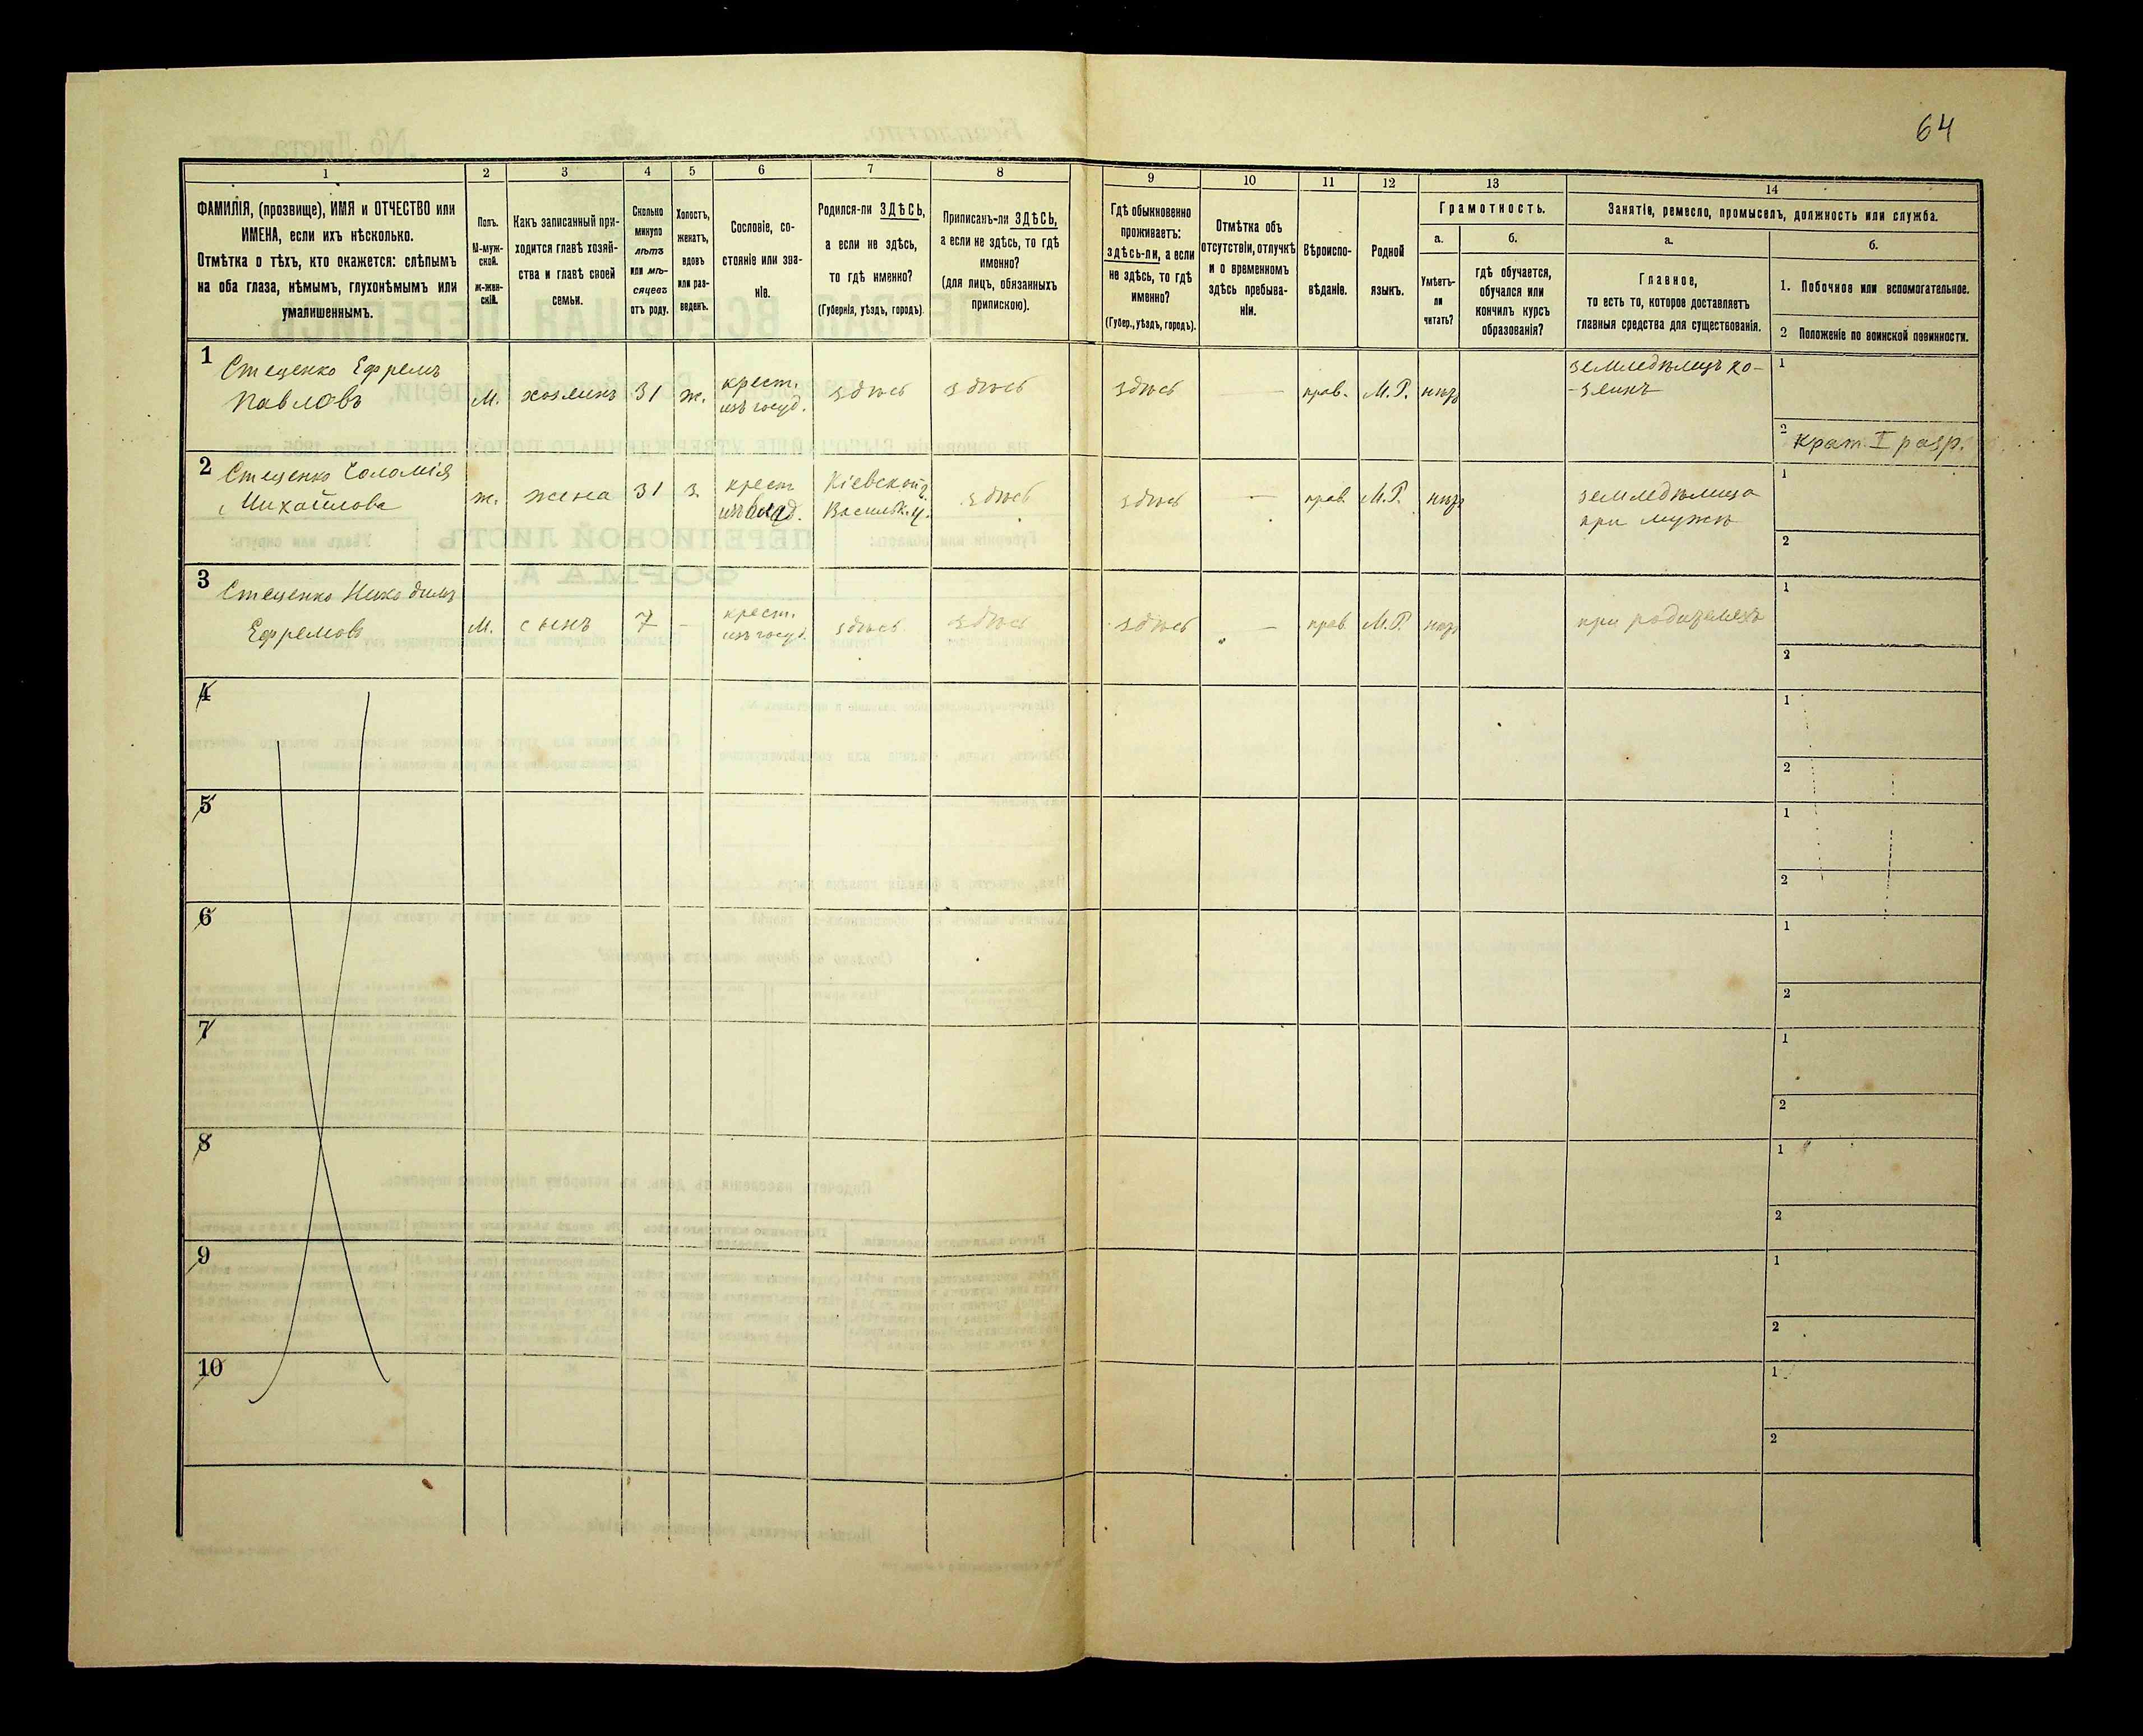 64
1
2
3
4
5
6
7
8
9
10
11
12
13
14
ФАМИЛІЯ, (прозвище), ИМЯ и ОТЧЕСТВО или
ИМЕНА, если ихъ нѣсколько.
Отмѣтка о тѣхъ, кто окажется: слѣпымъ
на оба глаза, нѣмымъ, глухонѣмымъ или
умалишеннымъ.
Полъ.
М-муж-
ской.
ж-жен-
скій.
Какъ записанный при-
ходится главѣ хозяй-
ства и главѣ своей
семьи.
Сколько
минуло
лѣтъ
или мѣ-
сяцевъ
отъ роду.
Холостъ,
женатъ,
вдовъ
или раз-
веденъ.
Сословіе, со-
стояніе или зва-
ніе.
Родился-ли ЗДѢСЬ,
а если не здѣсь,
то гдѣ именно?
(Губернія, уѣздъ, городъ).
Приписанъ-ли ЗДѢСЬ,
а если не здѣсь, то гдѣ
именно?
(для лицъ, обязанныхъ
припискою).
Гдѣ обыкновенно
проживаетъ:
здѣсь-ли, а если
не здѣсь, то гдѣ
именно?
(Губер., уѣздъ, городъ).
Отмѣтка объ
отсутствіи, отлучкѣ
и о временномъ
здѣсь пребыва-
ніи.
Вѣроиспо-
вѣданіе.
Родной
языкъ.
Грамотность.
а.
Умѣетъ-
ли
читать?
б.
гдѣ обучается,
обучался или
кончилъ курсъ
образованія?
Занятіе, ремесло, промыселъ, должность или служба.
а.
Главное,
то есть то, которое доставляетъ
главныя средства для существованія.
б.
1. Побочное или вспомогательное.
2 Положеніе по воинской повинности.
1
Стеценко Ефремъ
Павловъ
М.
хозяинъ
31
ж.
крест.
изъ госуд.
здѣсь
здѣсь
здѣсь
—
прав.
М.Р.
нѣтъ
земледѣлецъ хо-
-зяинъ
1
2
рат. I разр.
2
Стеценко Соломія
Михайлова
ж.
жена
31
з.
крест
Кіевской г.
Васильк. у.
здѣсь
здѣсь
—
прав.
М.Р.
нѣтъ
земледѣлица
при мужѣ
1
2
3
Стеценко Никодимъ
Ефремовъ
М.
сынъ
7
-
крест.
изъ госуд.
здѣсь
здѣсь
здѣсь
—
прав
М.Р.
нѣтъ
при родителяхъ
1
2
4
1
2
5
1
2
6
1
2
7
1
2
8
1
2
9
1
2
10
1
2